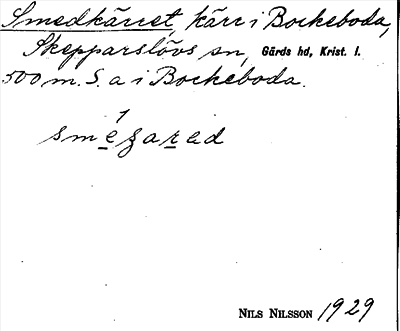 Smedkärret, kärr i Bockeboda,
Skepparslövs sn, Gärds hd, Krist. l.
500 m. S. a i Bockeboda.
NILS NILSSON 1929